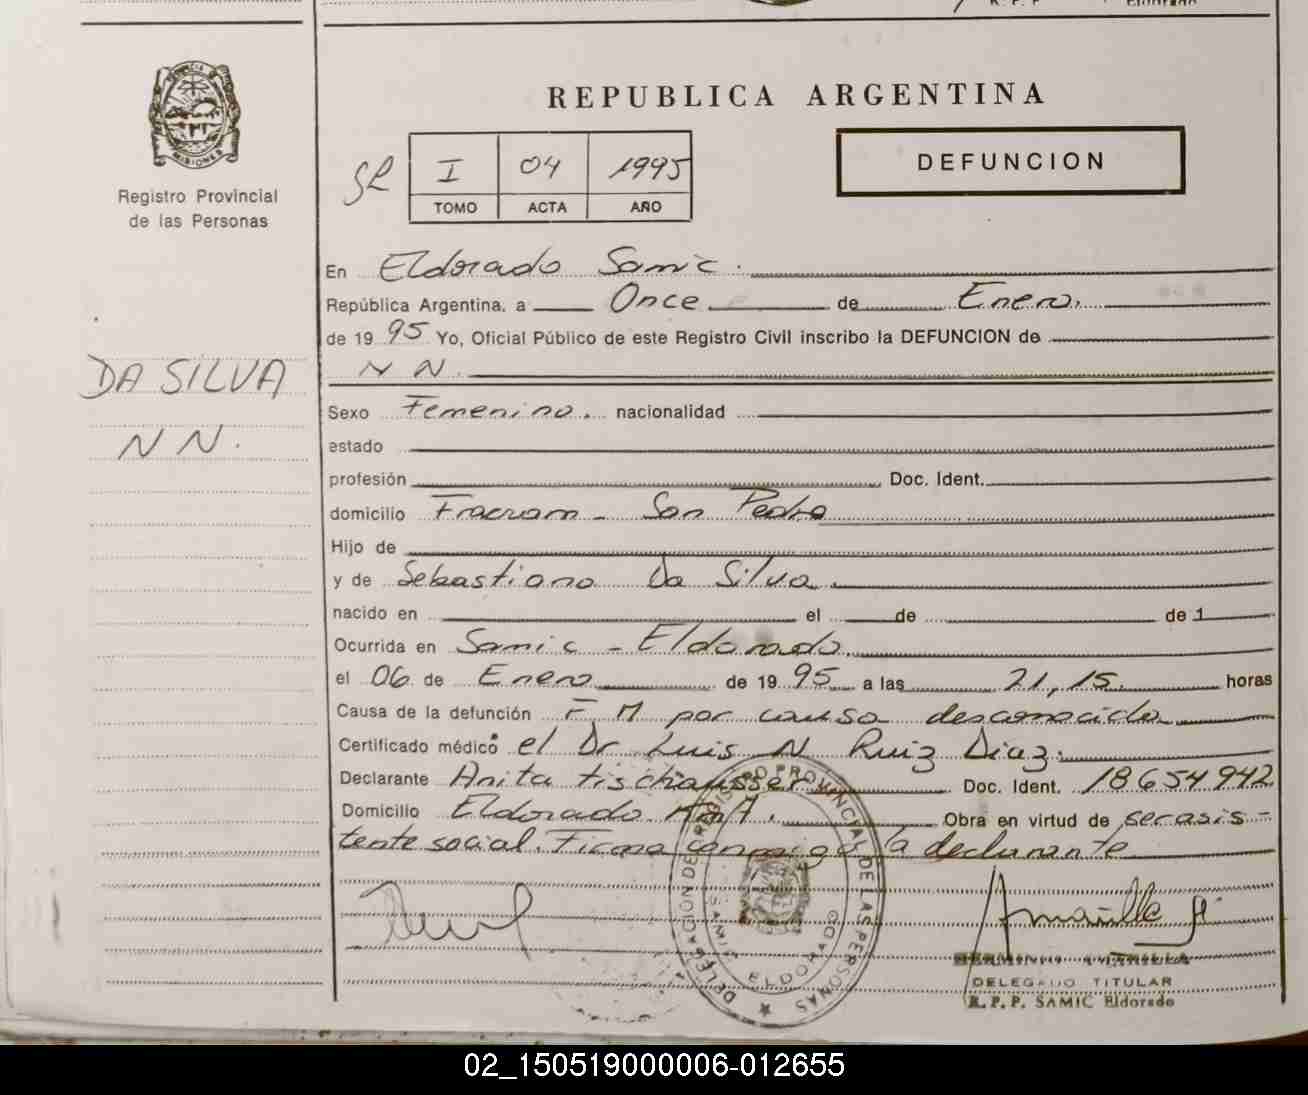 R. P. P Eldorado
MISIONES
Registro Provincial
de las Personas
REPUBLICA ARGENTINA
DEFUNCION
SR I 04 1995
TOMO ACTA AÑO
En Eldorado Samic.
República Argentina, a Once de Enero.
de 19 95 Yo, Oficial Público de este Registro Civil inscribo la DEFUNCION de
DA SILVA
N N.
N N.
Sexo Femenino. nacionalidad
estado
profesión Doc. Ident.
domicilio Fracram - San Pedro
Hijo de
y de Sebastiano Da Silva.
nacido en el de de 1
Ocurrida en Samic - Eldorado.
el 06 de Enero de 19 95 a las 21,15. horas
Causa de la defunción F M por causa desconocida
Certificado médico el Dr Luis N Ruiz Diaz.
Declarante Anita Doc. Ident. 18654942
Domicilio Eldorado Km 7. Obra en virtud de ser asis-
tente social. Firma conmigo la declarante
DELEGACION DEL REGISTRO PROVINCIAL DE LAS PERSONAS
SAMIC ELDORADO
DELEGADO TITULAR
R. P. P. SAMIC Eldorado
02_150519000006-012655